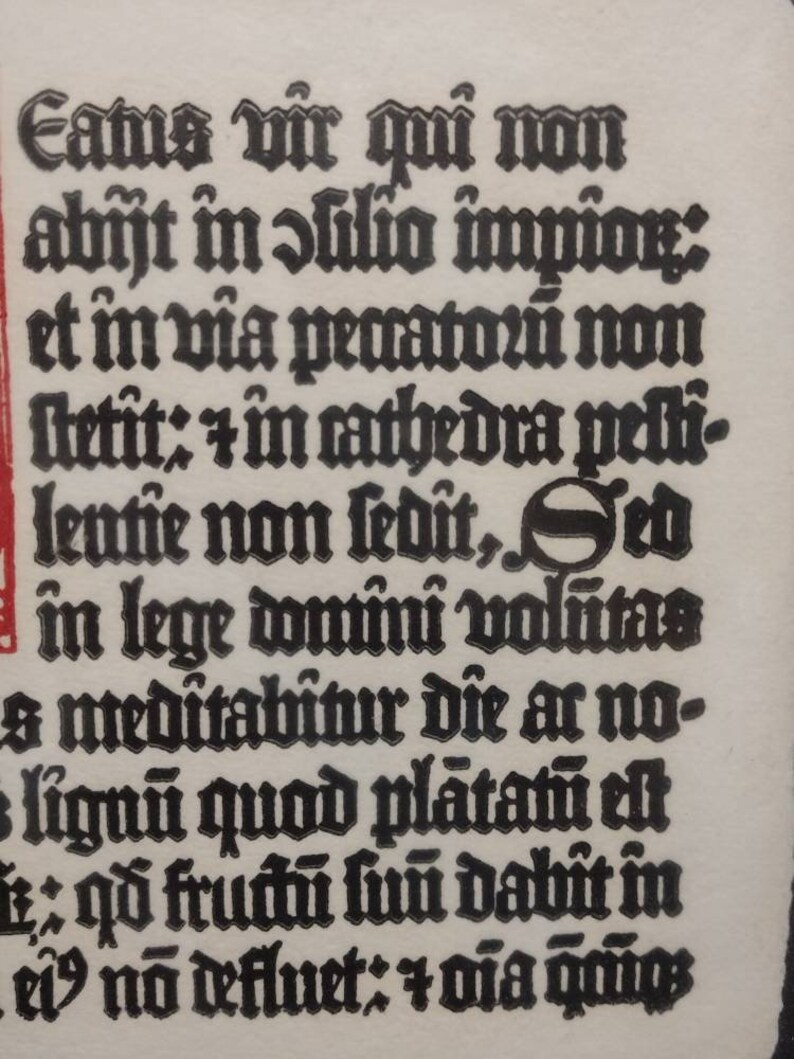 Eatus vir qui non
abijt in ɔsilio impioꝝ:
et in via peccatorū non
stetit: ⁊ in cathedra pesti-
lentie non sedit, Sed
in lege domini volūtas
s meditabitur die ac no-
lignū quod plātatū est
qđ fructū suū dabit in
eiꝰ nō defluet: ⁊ oīa q̄cūqꝫ